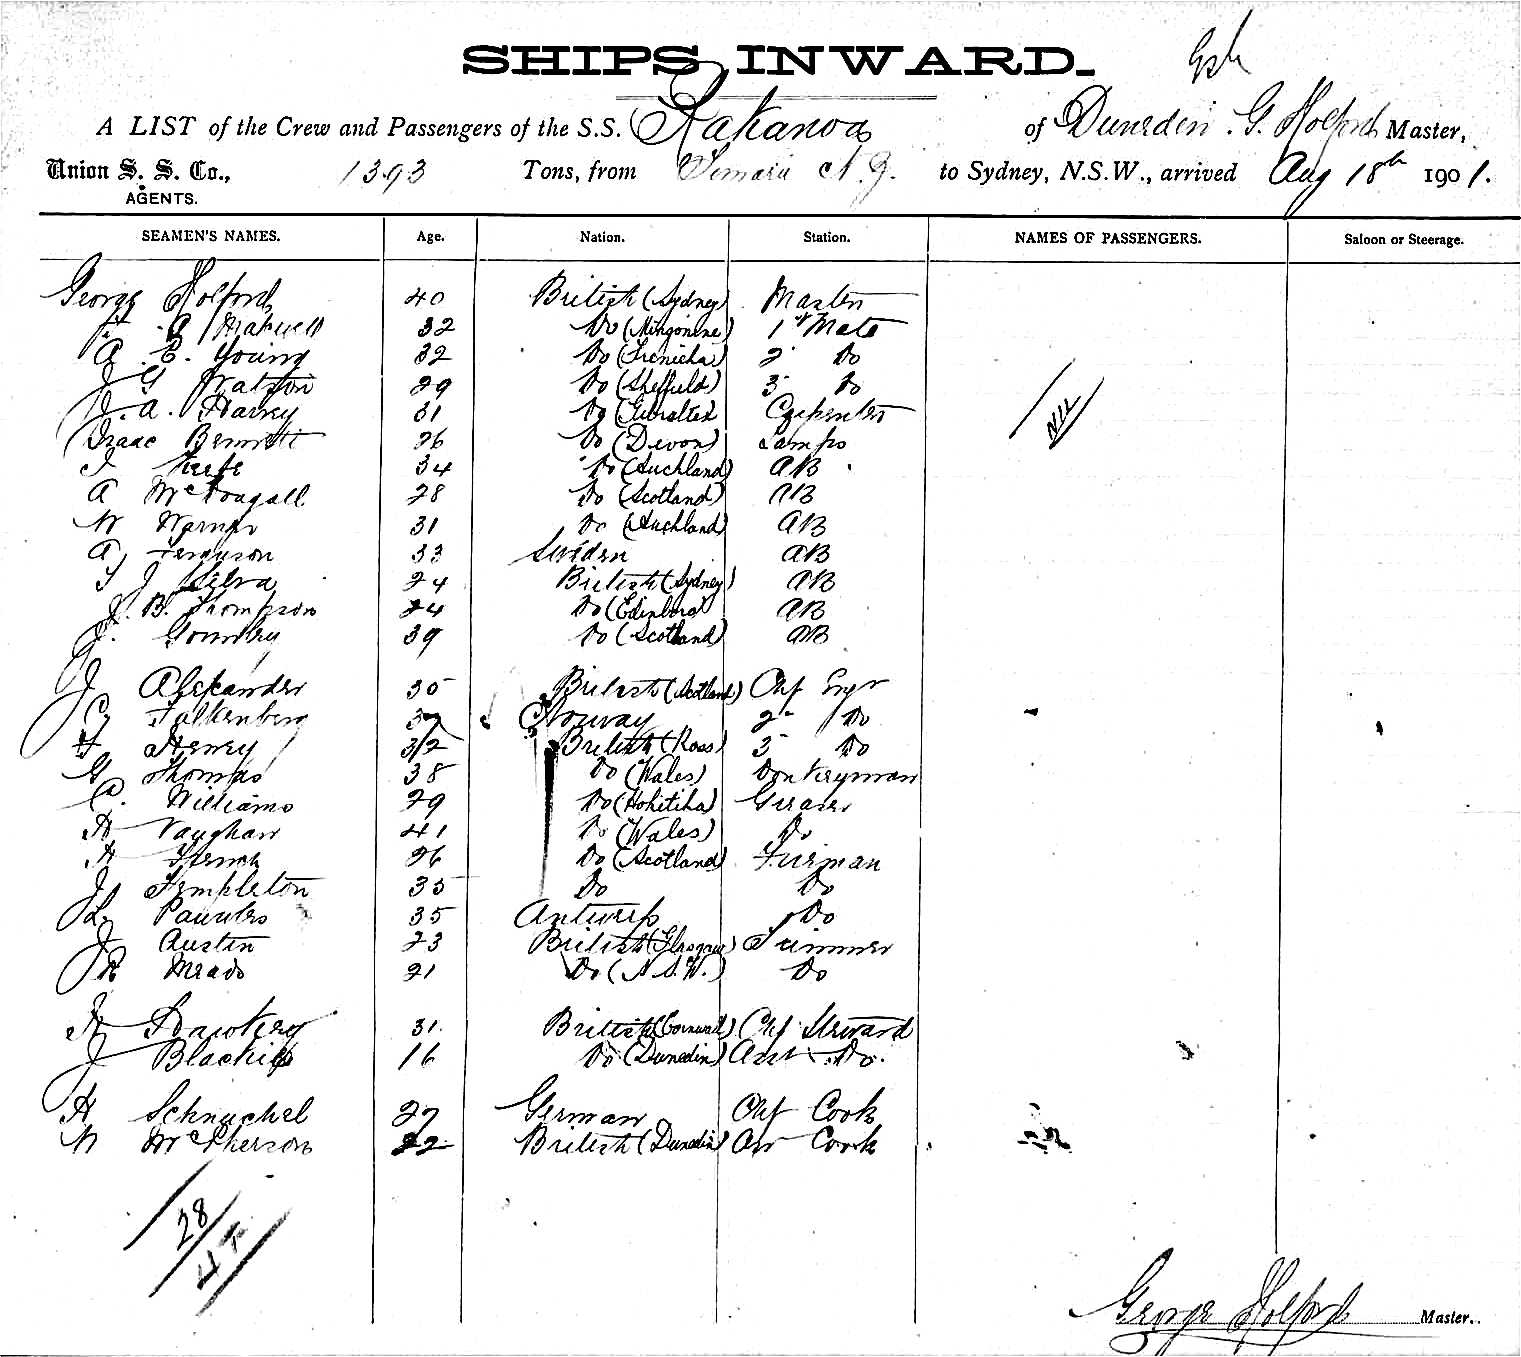 SHIPS INWARD.
A LIST of the Crew and Passengers of the S.S. Rakanoa of Dunedin. G. Holford Master,
Union S. S. Co., 1393 Tons, from Timaru N.Z. to Sydney, N.S.W., arrived Aug 18th 1901.
AGENTS.
SEAMEN'S NAMES. Age. Nation. Station. NAMES OF PASSENGERS. Saloon or Steerage.
George Holford 40 British (Sydney) Master
32 Do 1st Mate
A. E. Young 32 Do 2 Do
J G Watson 29 Do (Sheffield) 3 Do
A. Harvey 31 Do (Gibralter) Carpenter
NIL
Isaac Bennett 26 Do (Devon) Lamps
Keefe 34 Do (Auckland) AB
A McDougall 28 Do (Scotland) AB
W Warner 31 Do (Auckland) AB
A Ferguson 33 Sweden AB
J Silva 24 British (Sydney) AB
J. B. Thompson 24 Do (Edinboro) AB
J. Gourley 39 Do (Scotland) AB
J Alexander 35 British (Scotland) Chf Engr
C Falkenberg Norway 2 Do
Henry 32 British (Ross) 3 Do
G Thomas 38 Do (Wales) Donkeyman
Williams 29 Do (Hokitika) Greaser
H Vaughan 41 Do (Wales) Do
H French 26 Do (Scotland) Fireman
J Templeton 35 Do Do
L Pauwels 35 Antwerp Do
J Austin 23 British (Glasgow) Trimmer
R Mead 21 Do (N.S.W.) Do
H Hawkey 31 British (Cornwall) Chf Steward
J Blackie 16 Do (Dunedin) Asst Do.
H Schnuchel 27 German Chf Cook
N McPherson 22 British (Dunedin) Cook
28
George Holford Master.